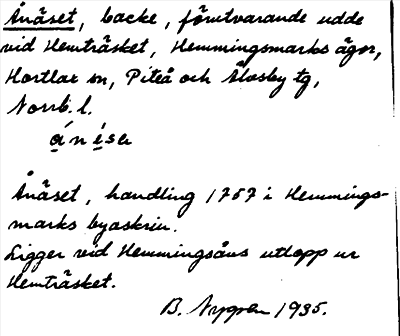 Ånäset, backe, förutvarande udde
vid Hemträsket, Hemmingsmarks ägor,
Hortlax sn, Piteå och Älvsby tg,
Norrb. l.
Ånäset, handling 1757 i Hemmings-
marks byaskrin.
Ligger vid Hemmingsåns utlopp ur
Hemträsket.
B. Nygren 1935.